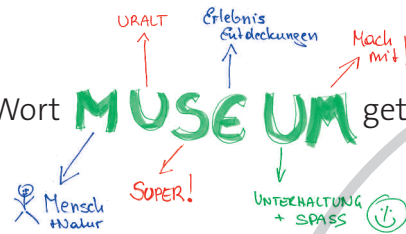 URALT
Erlebnis
Entdeckungen
Mach
mit!
Wort MUSEUM get
Mensch
+Natur
SUPER!
UNTERHALTUNG
+ SPASS